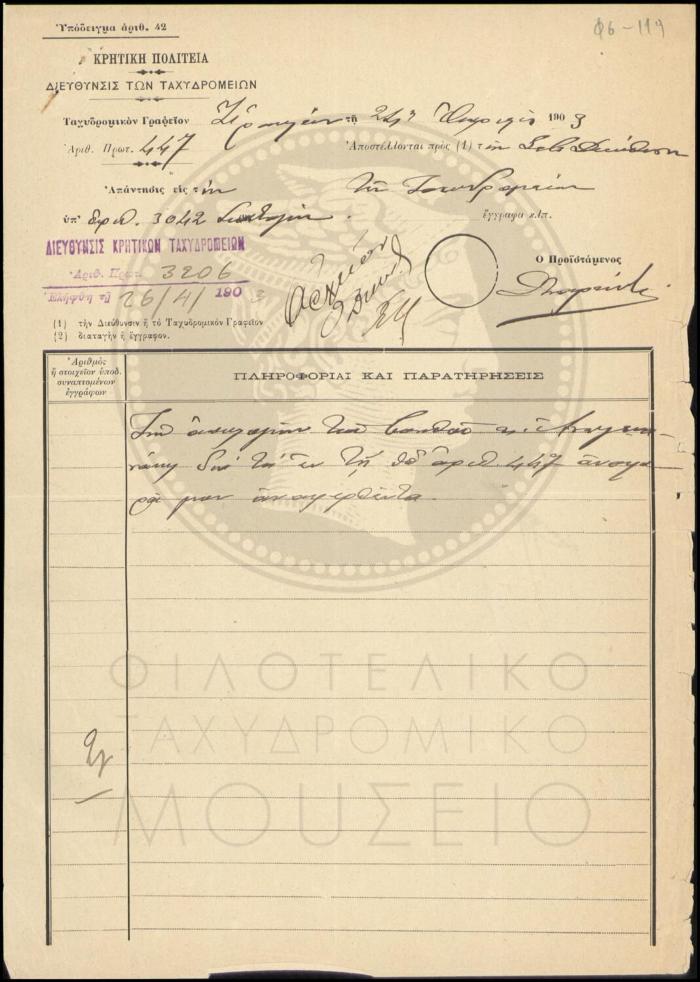 Ὑπόδειγμα ἀριθ. 42
Φ6-119
ΚΡΗΤΙΚΗ ΠΟΛΙΤΕΙΑ
ΔΙΕΥΘΥΝΣΙΣ ΤΩΝ ΤΑΧΥΔΡΟΜΕΙΩΝ
Ταχυδρομικὸν Γραφεῖον τῇ 24ῃ Ἀπριλίου 1903
Ἀριθ. Πρωτ. 447 Ἀποστέλλονται πρὸς (1) τὴν Σεβ Διεύθυνσιν
Ἀπάντησις εἰς τὴν τῶν Ταχυδρομείων
ὑπ' ἀριθ. 3042 ἔγγραφα κλπ.
ΔΙΕΥΘΥΝΣΙΣ ΚΡΗΤΙΚΩΝ ΤΑΧΥΔΡΟΜΕΙΩΝ
Ἀριθ. Πρωτ. 3206
Ἐλήφθη τῇ 26/4/1903
Ἀρχεῖον
Ὁ Προϊστάμενος
(1) τὴν Διεύθυνσιν ἢ τὸ Ταχυδρομικὸν Γραφεῖον
(2) διαταγὴν ἢ ἔγγραφον.
Ἀριθμὸς
ἢ στοιχεῖον ὑποδ.
συναπτομένων
ἐγγράφων
ΠΛΗΡΟΦΟΡΙΑΙ ΚΑΙ ΠΑΡΑΤΗΡΗΣΕΙΣ
Τὴν τοῦ
διὰ τὰ ἐν τῇ ὑπ' ἀριθ. 447 ἀναφο-
ρᾷ μου ἀναφερθέντα.
ΦΙΛΟΤΕΛΙΚΟ
ΤΑΧΥΔΡΟΜΙΚΟ
ΜΟΥΣΕΙΟ